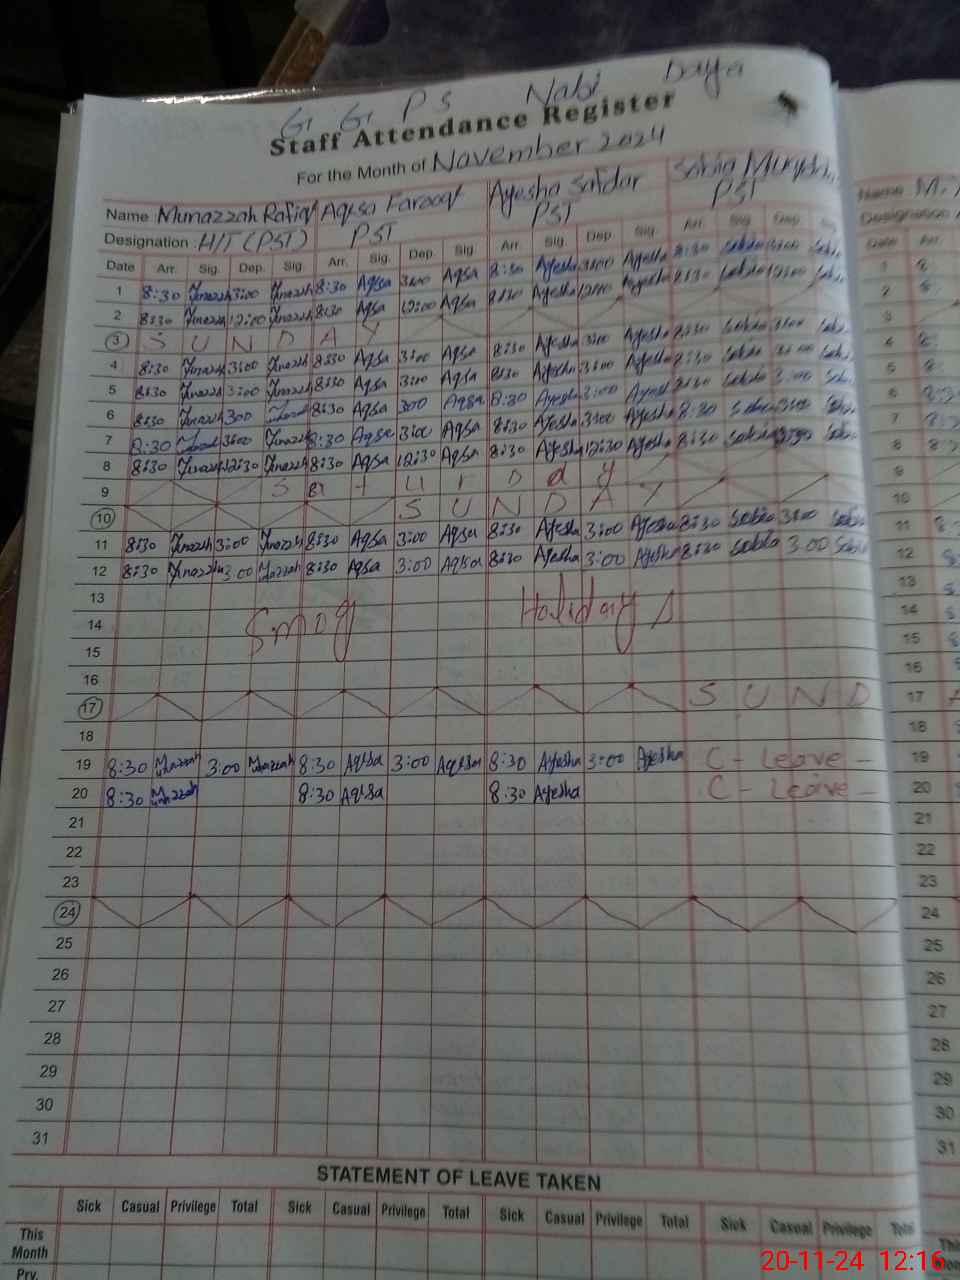 G. G. P S Nabi Daya
Staff Attendance Register
For the Month of November 2024
Name Munazzah Rafiq Aqsa Farooq Ayesha Safdar Sabia
Designation H/T (PST) PST PST PST
Date Arr. Sig. Dep. Sig. Arr. Sig. Dep. Sig. Arr. Sig. Dep. Sig. Arr. Sig. Dep. Sig.
1 8:30 3:00 8:30 Aqsa 3:00 Aqsa 8:30 Ayesha 3:00 Ayesha 8:30 Sabia 3:00
2 8:30 12:00 8:30 Aqsa 12:00 Aqsa 8:30 Ayesha 12:00 Ayesha 8:30 Sabia 12:00
3 S U N D A Y
4 8:30 3:00 8:30 Aqsa 3:00 Aqsa 8:30 Ayesha 3:00 Ayesha 8:30 Sabia 3:00
5 8:30 3:00 8:30 Aqsa 3:00 Aqsa 8:30 Ayesha 3:00 Ayesha 8:30 Sabia 3:00
6 8:30 300 8:30 Aqsa 300 Aqsa 8:30 Ayesha 3:00 Ayesha 8:30 Sabia 3:00
7 8:30 3:00 8:30 Aqsa 3:00 Aqsa 8:30 Ayesha 3:00 Ayesha 8:30 Sabia 3:00
8 8:30 12:30 8:30 Aqsa 12:30 Aqsa 8:30 Ayesha 12:30 Ayesha 8:30 Sabia
9 S a t u r D a y
10 S U N D A Y
11 8:30 3:00 8:30 Aqsa 3:00 Aqsa 8:30 Ayesha 3:00 Ayesha 8:30 Sabia 3:00 Sabia
12 8:30 3:00 8:30 Aqsa 3:00 Aqsa 8:30 Ayesha 3:00 Ayesha 8:30 Sabia 3:00 Sabia
13
14 Smog Holidays
15
16
17 S U N D
18
19 8:30 3:00 8:30 Aqsa 3:00 Aqsa 8:30 Ayesha 3:00 Ayesha C - Leave -
20 8:30 8:30 Aqsa 8:30 Ayesha C - Leave -
21
22
23
24
25
26
27
28
29
30
31
STATEMENT OF LEAVE TAKEN
Sick Casual Privilege Total Sick Casual Privilege Total Sick Casual Privilege Total Sick Casual Privilege
This
Month
Prv.
Name M.
Designation
Date Arr.
1 8:
2 8:
3
4 8:
5 8:
6
7
8
9
10
11
12
13
14
15
16
17
18
19
20
21
22
23
24
25
26
27
28
29
30
31
20-11-24 12:16